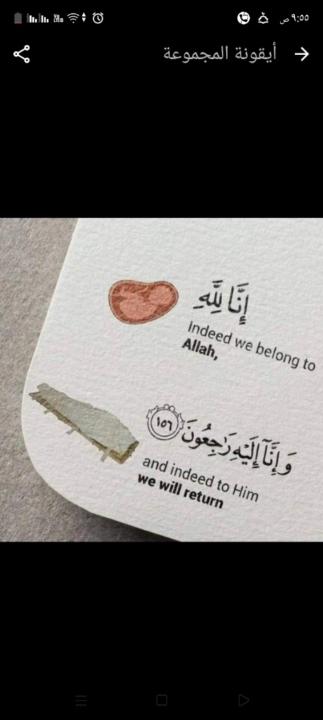 ٩:٥٥ ص
أيقونة المجموعة
إِنَّا لِلَّهِ
Indeed we belong to
Allah,
وَإِنَّآ إِلَيْهِ رَٰجِعُونَ ١٥٦
and indeed to Him
we will return